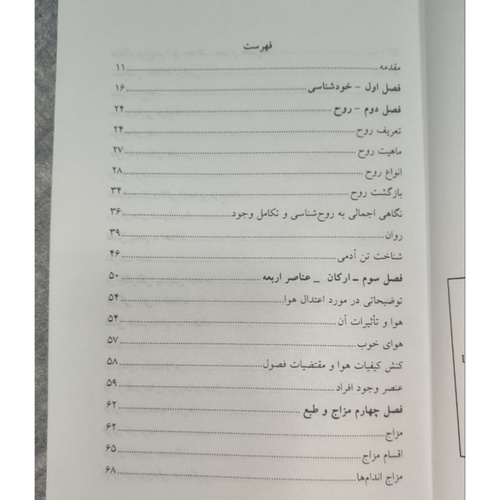 فهرست
مقدمه ........ ۱۱
فصل اول - خودشناسی ........ ۱۶
فصل دوم - روح ........ ۲۴
تعریف روح ........ ۲۴
ماهیت روح ........ ۲۷
انواع روح ........ ۲۸
بازگشت روح ........ ۳۴
نگاهی اجمالی به روح‌شناسی و تکامل وجود ........ ۳۶
روان ........ ۳۹
شناخت تن آدمی ........ ۴۶
فصل سوم ـ ارکان _ عناصر اربعه ........ ۵۰
توضیحاتی در مورد اعتدال هوا ........ ۵۴
هوا و تأثیرات آن ........ ۵۴
هوای خوب ........ ۵۷
کنش کیفیات هوا و مقتضیات فصول ........ ۵۸
عنصر وجود افراد ........ ۵۹
فصل چهارم مزاج و طبع ........ ۶۲
مزاج ........ ۶۲
اقسام مزاج ........ ۶۵
مزاج اندام‌ها ........ ۶۸